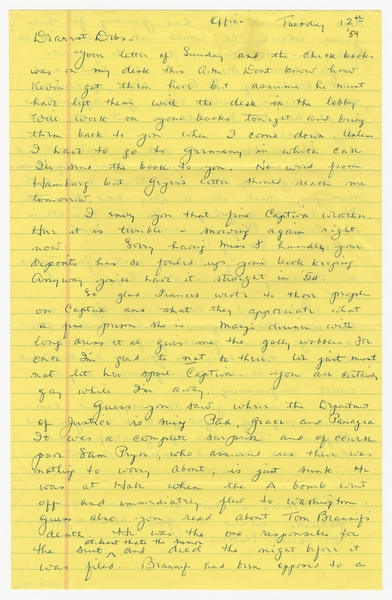 Office Tuesday 12th
'54
Dearest Debs -
Your letter of Sunday and the check books
was on my desk this A.M. Dont know how
Kevin got them here but assume he must
have left them with the desk in the lobby.
Will work on your books tonight and bring
them back to you when I come down. Unless
I have to go to Germany in which case
I'll send the book to you. No word from
Hamburg but letter should reach me
tomorrow.
I envy you that fine Captiva weather.
Here it is terrible - snowing again right
now. Sorry having Miss I handle your
deposits has so fouled up your book keeping.
Anyway you'll have it straight in '54.
So glad Frances wrote to those people
on Captiva and that they appreciate what
a fine person she is. Mary's dinner with
long dress et al gives me the golly wobbles. For
once I'm glad to not be there. We just must
not let her spoil Captiva. You are certainly
gay while I'm away.
Guess you saw where the Department
of Justice is suing PAA, Grace and Panagra
It was a complete surprise and of course
poor Sam Pryor, who assured us there was
nothing to worry about, is just sunk. He
was at when the A bomb went
off and immediately flew to Washington.
Guess also you read about Tom Braniff's
death. He was the one responsible for
at least thats the rumor
the suit ^ and died the night before it
was filed. Braniff had been opposed to a